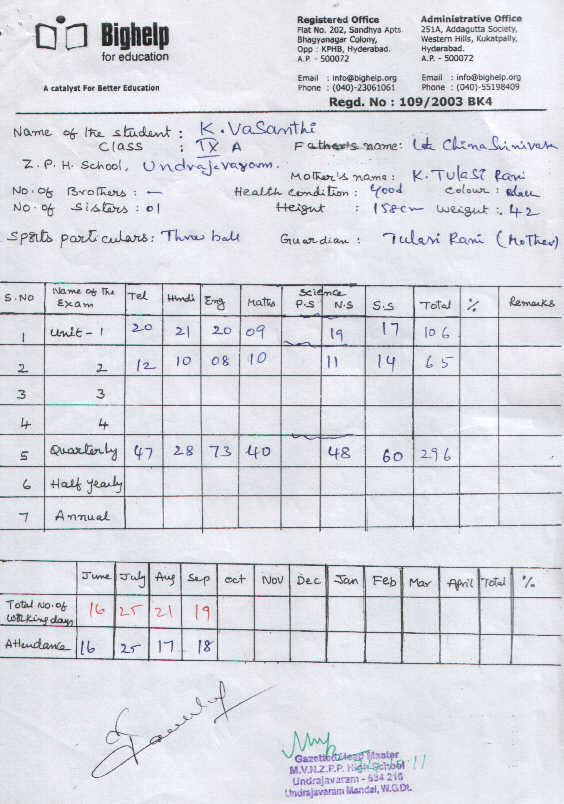 Bighelp
for education
A catalyst For Better Education
Registered Office
Flat No. 202, Sandhya Apts.
Bhagyanagar Colony,
Opp : KPHB, Hyderabad.
A.P. - 500072
Email : info@bighelp.org
Phone : (040)-23061061
Administrative Office
251A, Addagutta Society,
Western Hills, Kukatpally,
Hyderabad.
A.P. - 500072
Email : info@bighelp.org
Phone : (040)-55198409
Regd. No : 109/2003 BK4
Name of the student : K. Vasanthi
Class : IX A Father's name: Late China Srinivasa
Z. P. H. School, Undrajavaram. Mother's name : K. Tulasi Rani
No. of Brothers : — Health condition : good Colour : Black
No. of Sisters : 01 Height : 158cm weight : 42
Sports particulars : Throw ball Guardian : Tulasi Rani (Mother)
S.NO Name of the Exam Tel Hindi Eng Maths Science P.S N.S S.S Total % Remarks
1 Unit - 1 20 21 20 09 19 17 106
2 2 12 10 08 10 11 14 65
3 3
4 4
5 Quarterly 47 28 73 40 48 60 296
6 Half yearly
7 Annual
June July Aug Sep Oct Nov Dec Jan Feb Mar April Total %
Total No. of working days 16 25 21 19
Attendance 16 25 17 18
Gazetted Head Master
M.V.N.Z.P.P. High School
Undrajavaram - 534 216
Undrajavaram Mandal, W.G.Dt.